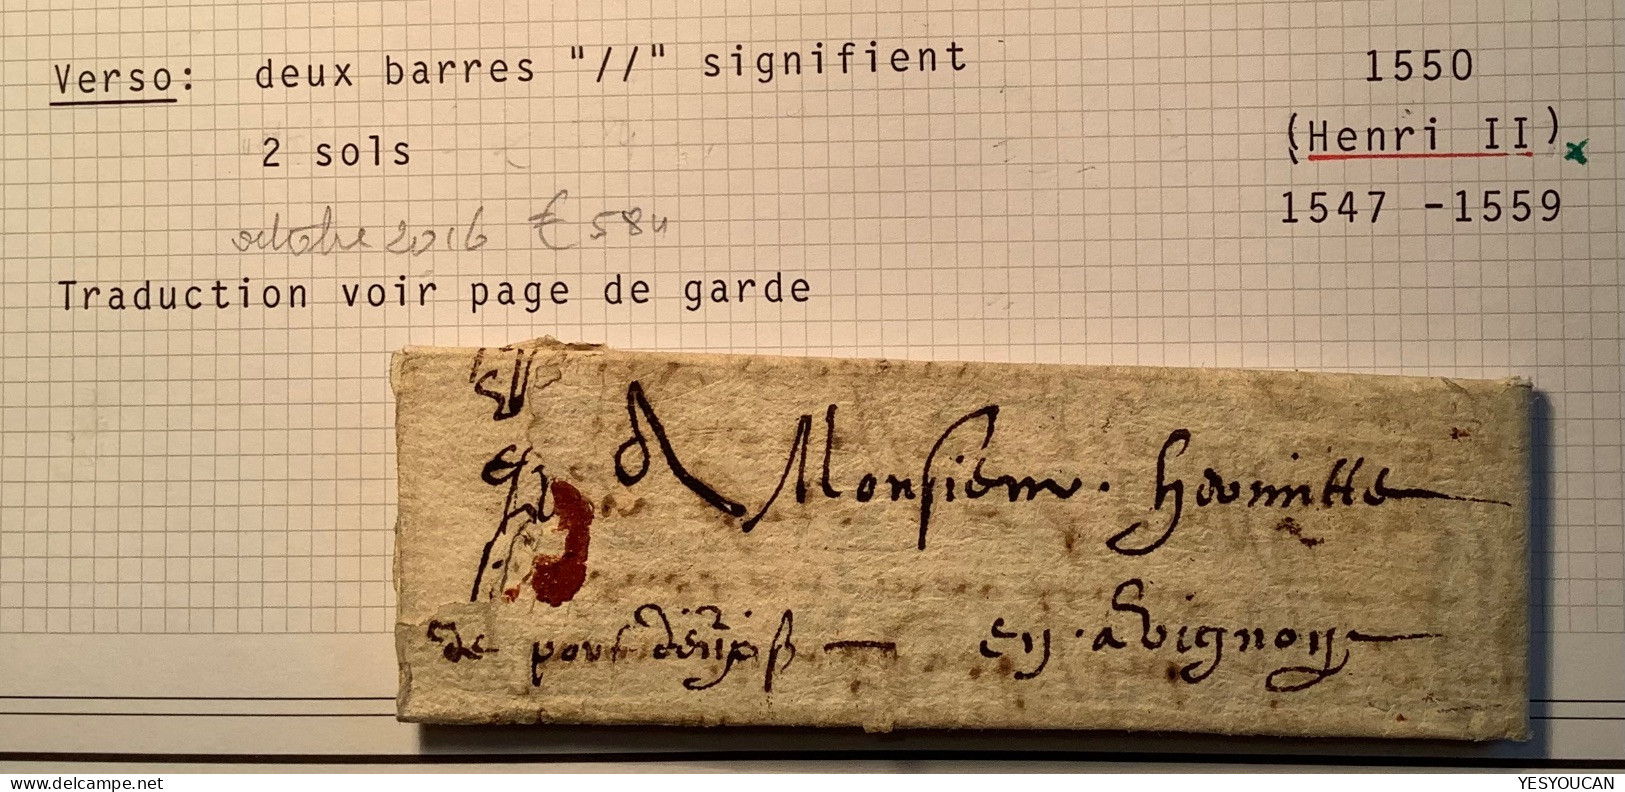 Verso: deux barres "//" signifient
2 sols
octobre 2016 € 584
Traduction voir page de garde
1550
(Henri II)x
1547 -1559
A Monsieur. hermitte
de port
en . avignon
www.delcampe.net
YESYOUCAN